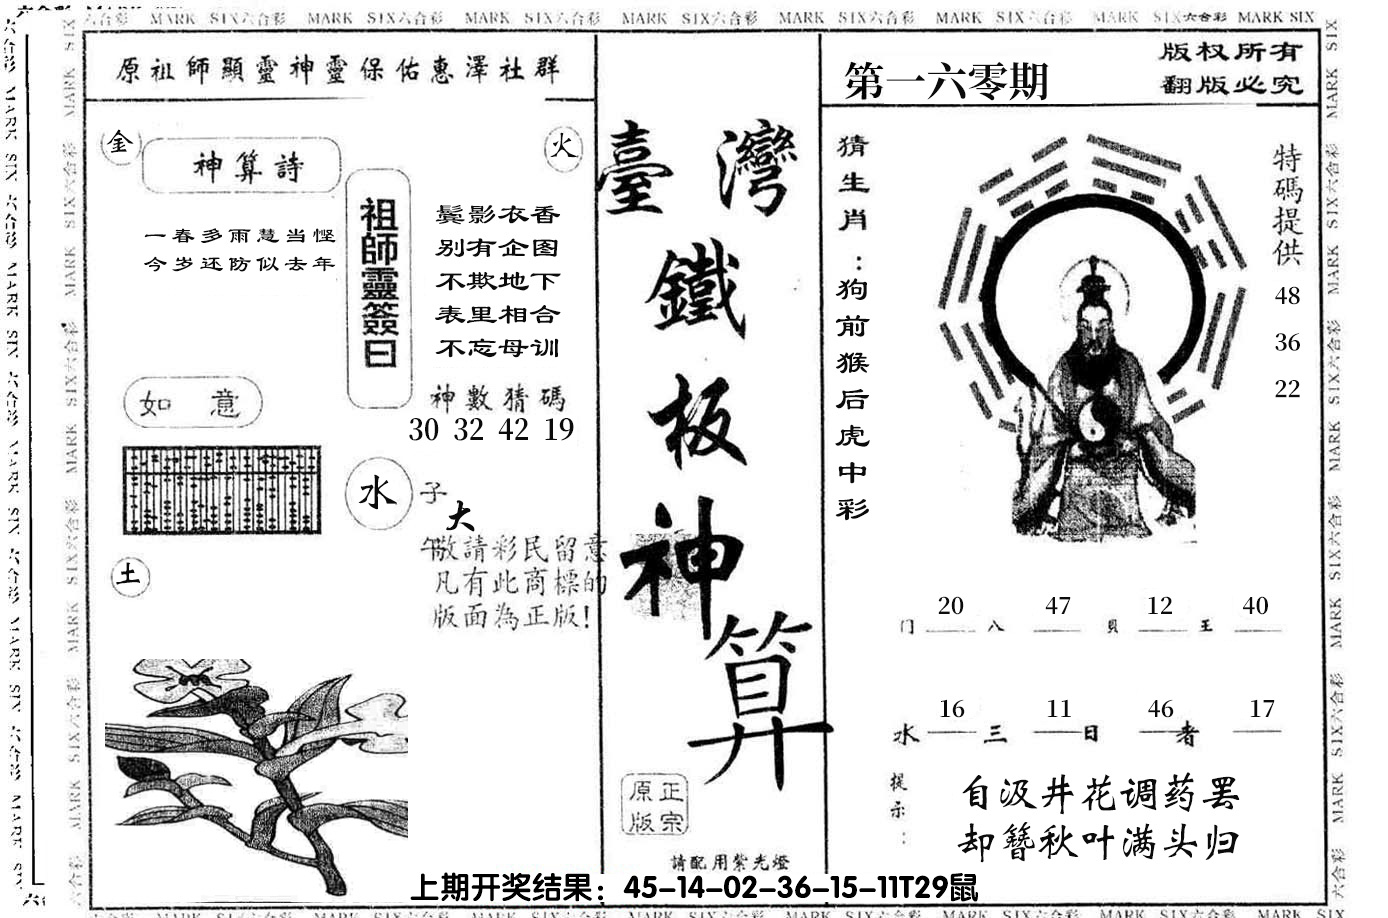 MARK SIX六合彩 MARK SIX六合彩 MARK SIX六合彩 MARK SIX六合彩 MARK SIX六合彩 MARK SIX六合彩 MARK SIX六合彩 MARK SIX
原祖師顯靈神靈保佑惠澤社群
金
神算詩
火
一春多雨慧当慳
今岁还防似去年
祖師靈簽曰
鬓影衣香
别有企图
不欺地下
表里相合
不忘母训
如意
神數猜碼
30 32 42 19
水
子
大
午
敬請彩民留意
凡有此商標的
版面為正版!
土
臺灣
鐵
板
神
算
正宗
原版
請配用紫光燈
第一六零期
版权所有
翻版必究
猜生肖:狗前猴后虎中彩
特碼提供
48
36
22
门 20 八 47 貝 12 王 40
水 16 三 11 日 46 者 17
提示:
自汲井花调药罢
却簪秋叶满头归
上期开奖结果：45-14-02-36-15-11T29鼠